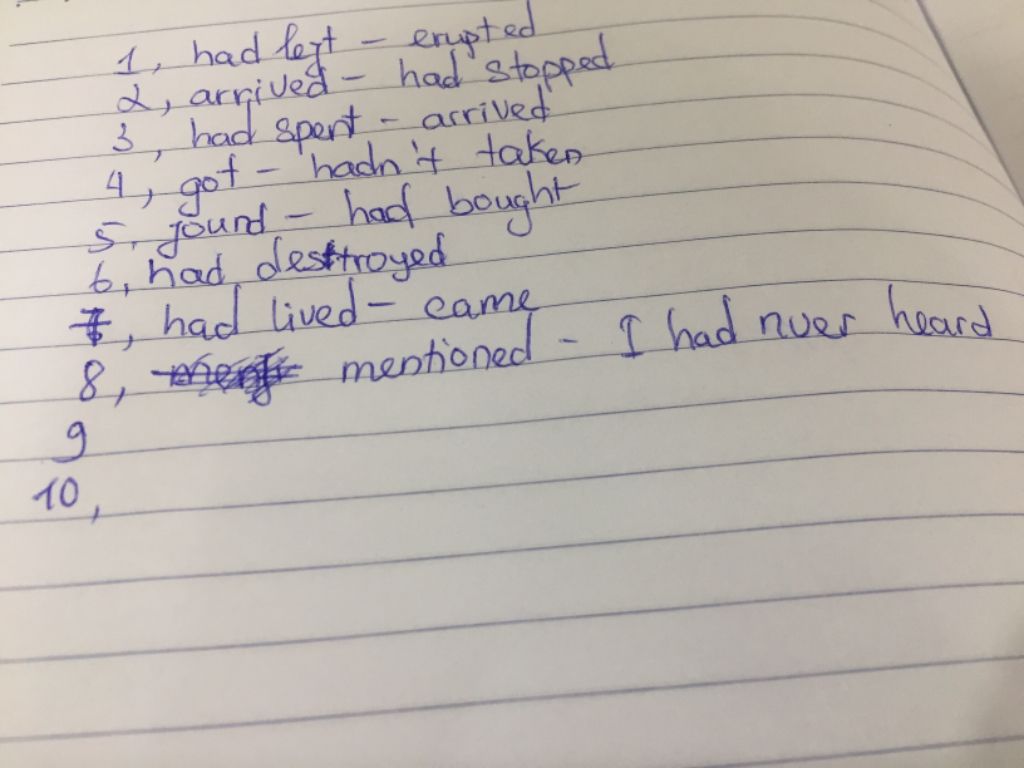 1, had left - erupted
2, arrived - had stopped
3, had spent - arrived
4, got - hadn't taken
5, found - had bought
6, had destroyed
7, had lived - came
8, mentioned - I had nver heard
9
10,